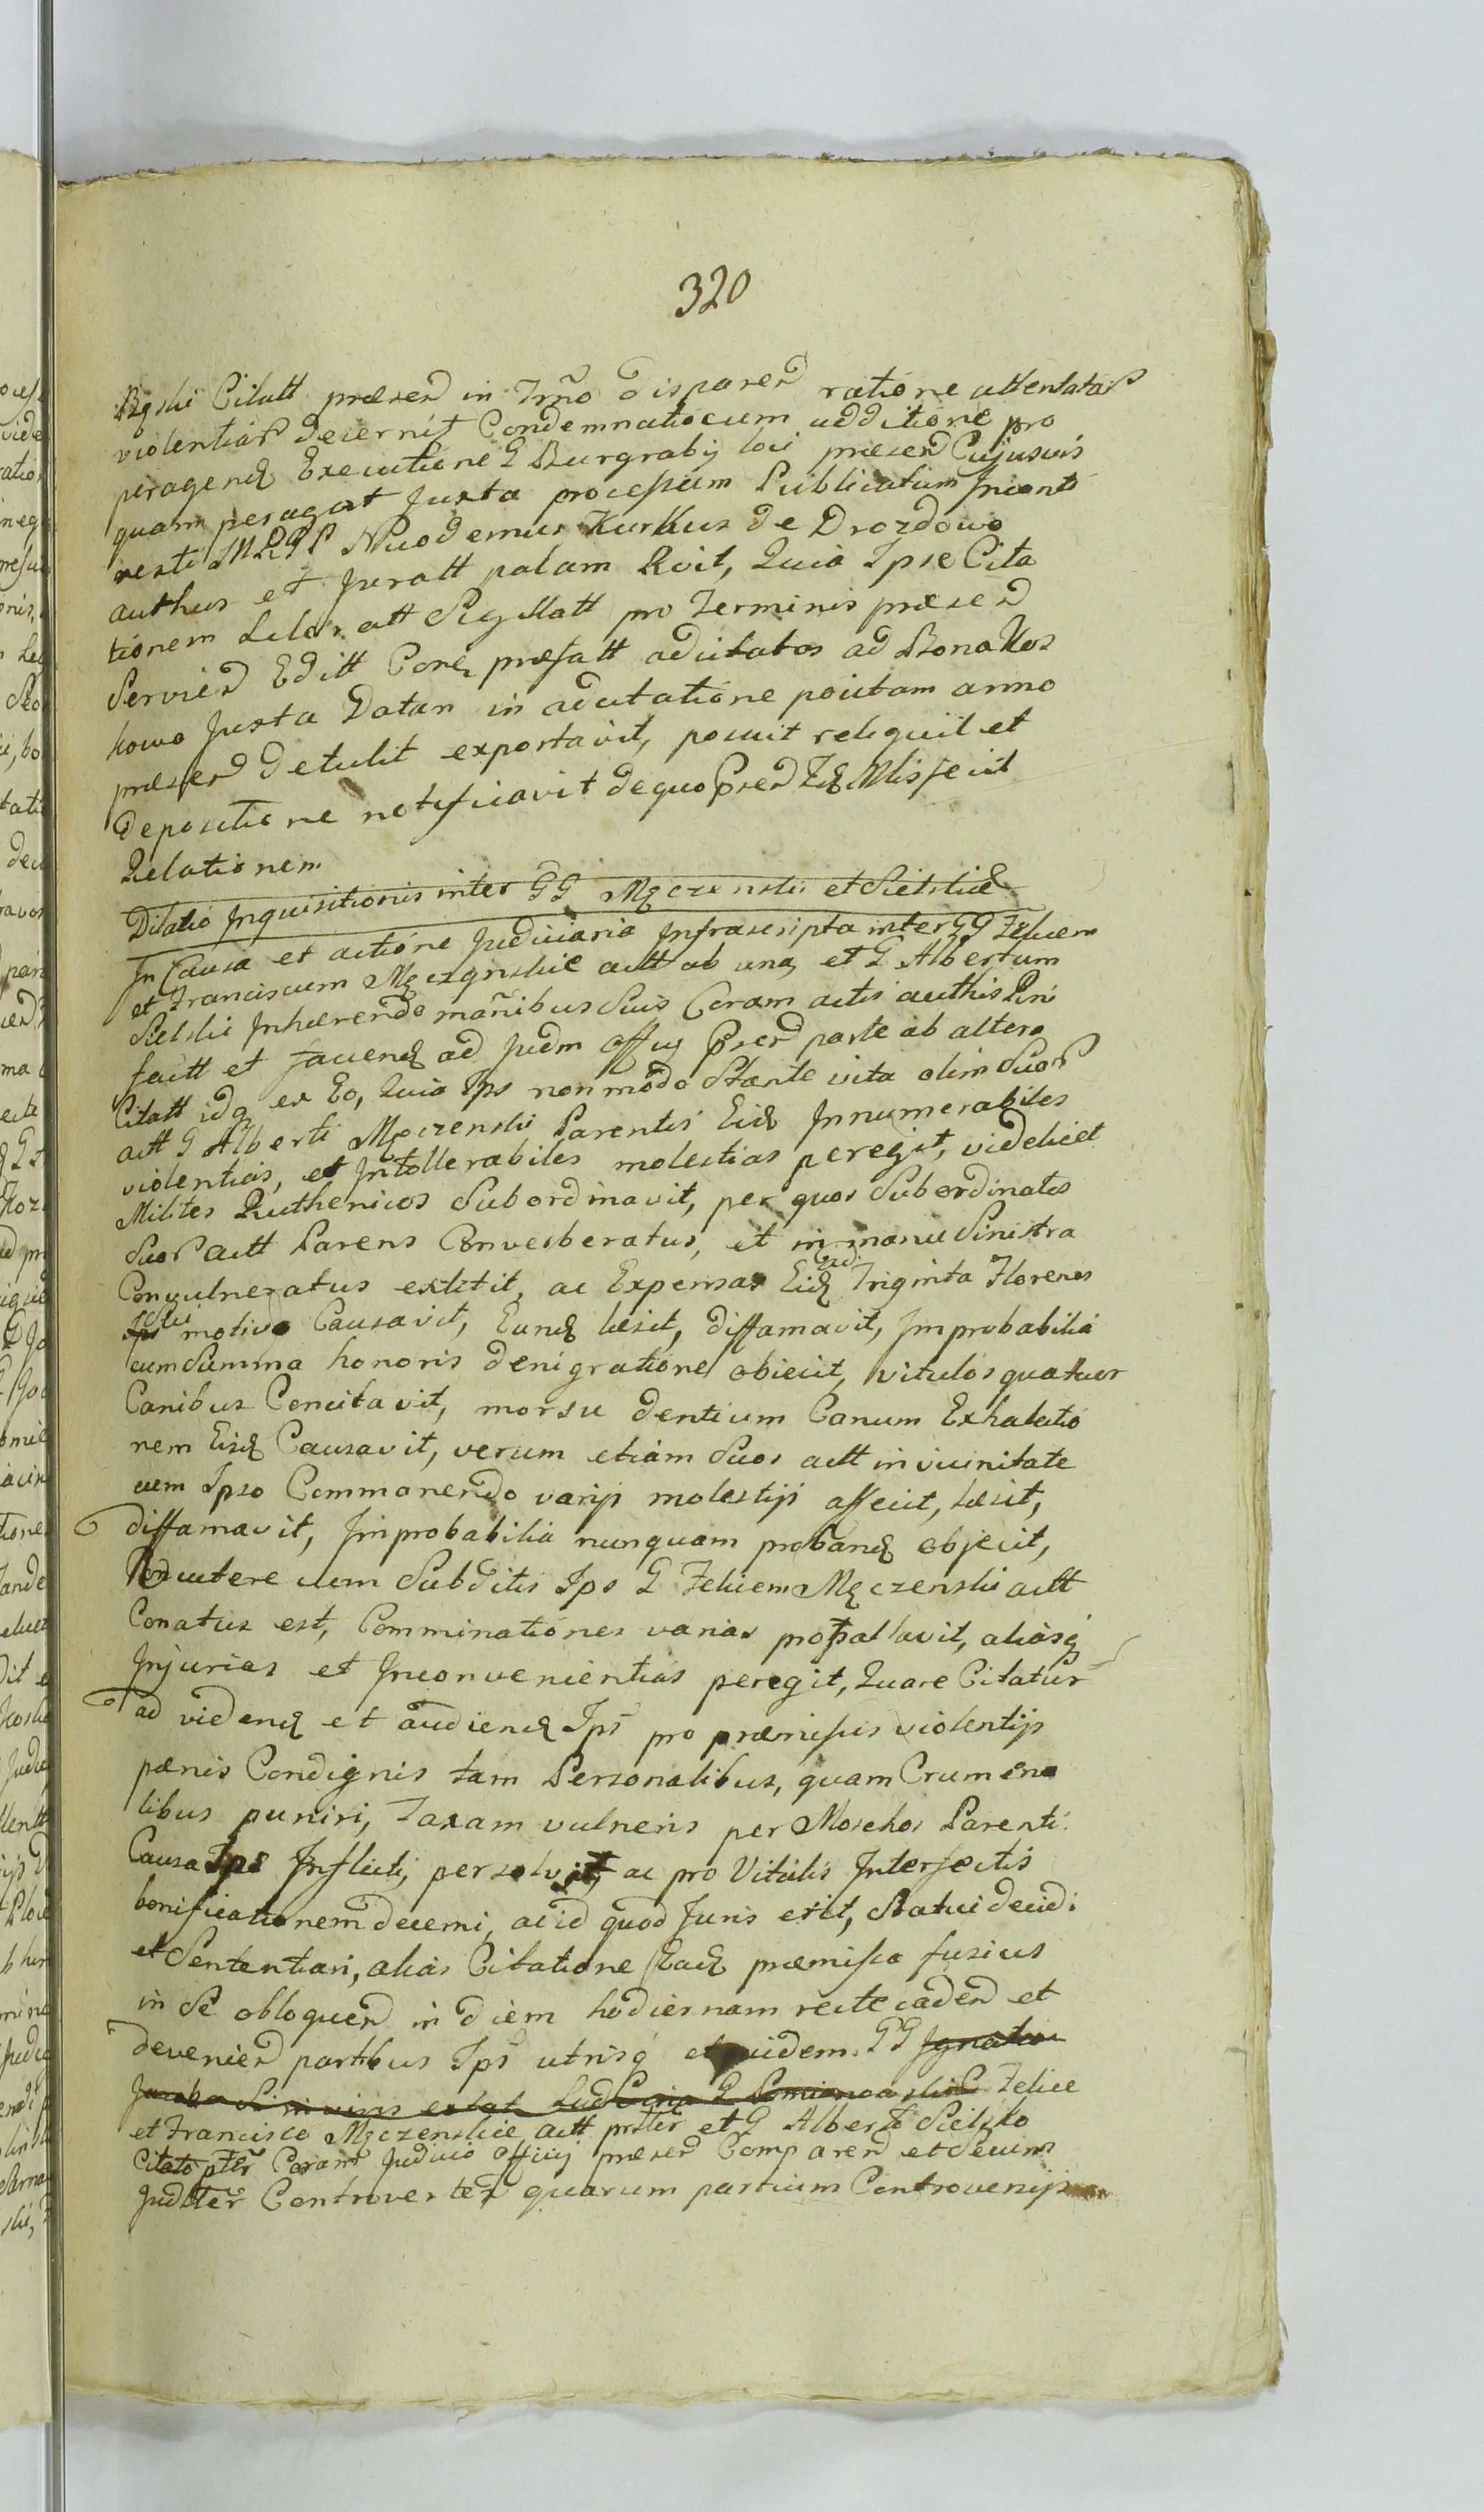 320
Bęski Citatt præsen in Trno disparen ratione attentatar
violentiar decernit Condemnatiocum additione pro
peragenq Executione G Burgrabij loci præsen Cujusvis
quam peragat Juxta processum Publicatum
Nicodemus Kurkus de Drozdowo
authus et Juratt palam Rvit, Quia Ipse Cita
tionem Liler att Sigillatt pro Terminis præsen
Servien Editt præfatt ad Bona Kos
kowo Juxta Datam in adcitatione poiitam anno
præsen detulit exportavit, posuit reliquit et
depositione notificavit dequo fecit
Relationem
Dilatio Inquisitionis inter GG Męczenskii et Sielskie
In Causa et actione Judiciaria Infrascripta inter GG Felicem
et Franciscum Męczynskie actt ab una, et G Albertum
Sielski Inhærendo manibus Suis Coram actis authis
factt et Judm Offcij Præn parte ab altera
Citatt idq ex Eo, Quia Ips non modo Stante vita olim Suor
actt G Alberti Męczenski Parentis Eidq Innumerabiles
violentias, et Intollerabiles molestias peregit, videlicet
Milites Ruthenicos Subordinavit, per quos Subordinatos
Suor actt Parens Converberatus, et in manu Sinistra
Convulneratus extitit, ac Expensas Eidq Triginta Florenos
motivo Causavit, Eundq læsit, diffamavit, Improbabilia
cum Summa honoris denigratione obiecit, vitulos quatuor
Canibus Concitavit, morsu dentium Canum Exhalatio
nem Eisdq Causavit, verum etiam Suos actt in vicinitate
cum Ipso Commanendo varijs molestijs affecit, læsit,
diffamavit, Improbabilia nunquam probanq objecit,
cum Subditis Ips G Felicem Męczenski actt
Conatus est, Comminationes varias aliasq
Injurias et Inconvenientias peregit, Quare Citatur
ad videnq et audienq Ips pro præmissis violentijs
pænis Condignis tam Personalibus, quam Crumena
libus puniri, Taxam vulneris per Moschos Parenti
Causa Ips Inflicti, ac pro Vitulis Interfectis
bonificationem decerni, ac id quod Juris erit, Statui decidi
et Sententiari, alias Citatione Eadq præmissa fusius
in Se obloquen in diem hodiernam recte caden et
devenien partibus Ips utrisq GG Ignatio
Felice
et Francisco Męczenskie actt prster et G Alberto Sielsko
Citato pter Coram Judicio Officij præsen Comparen et Secum
Judlter Controverten quarum partium Controversijs